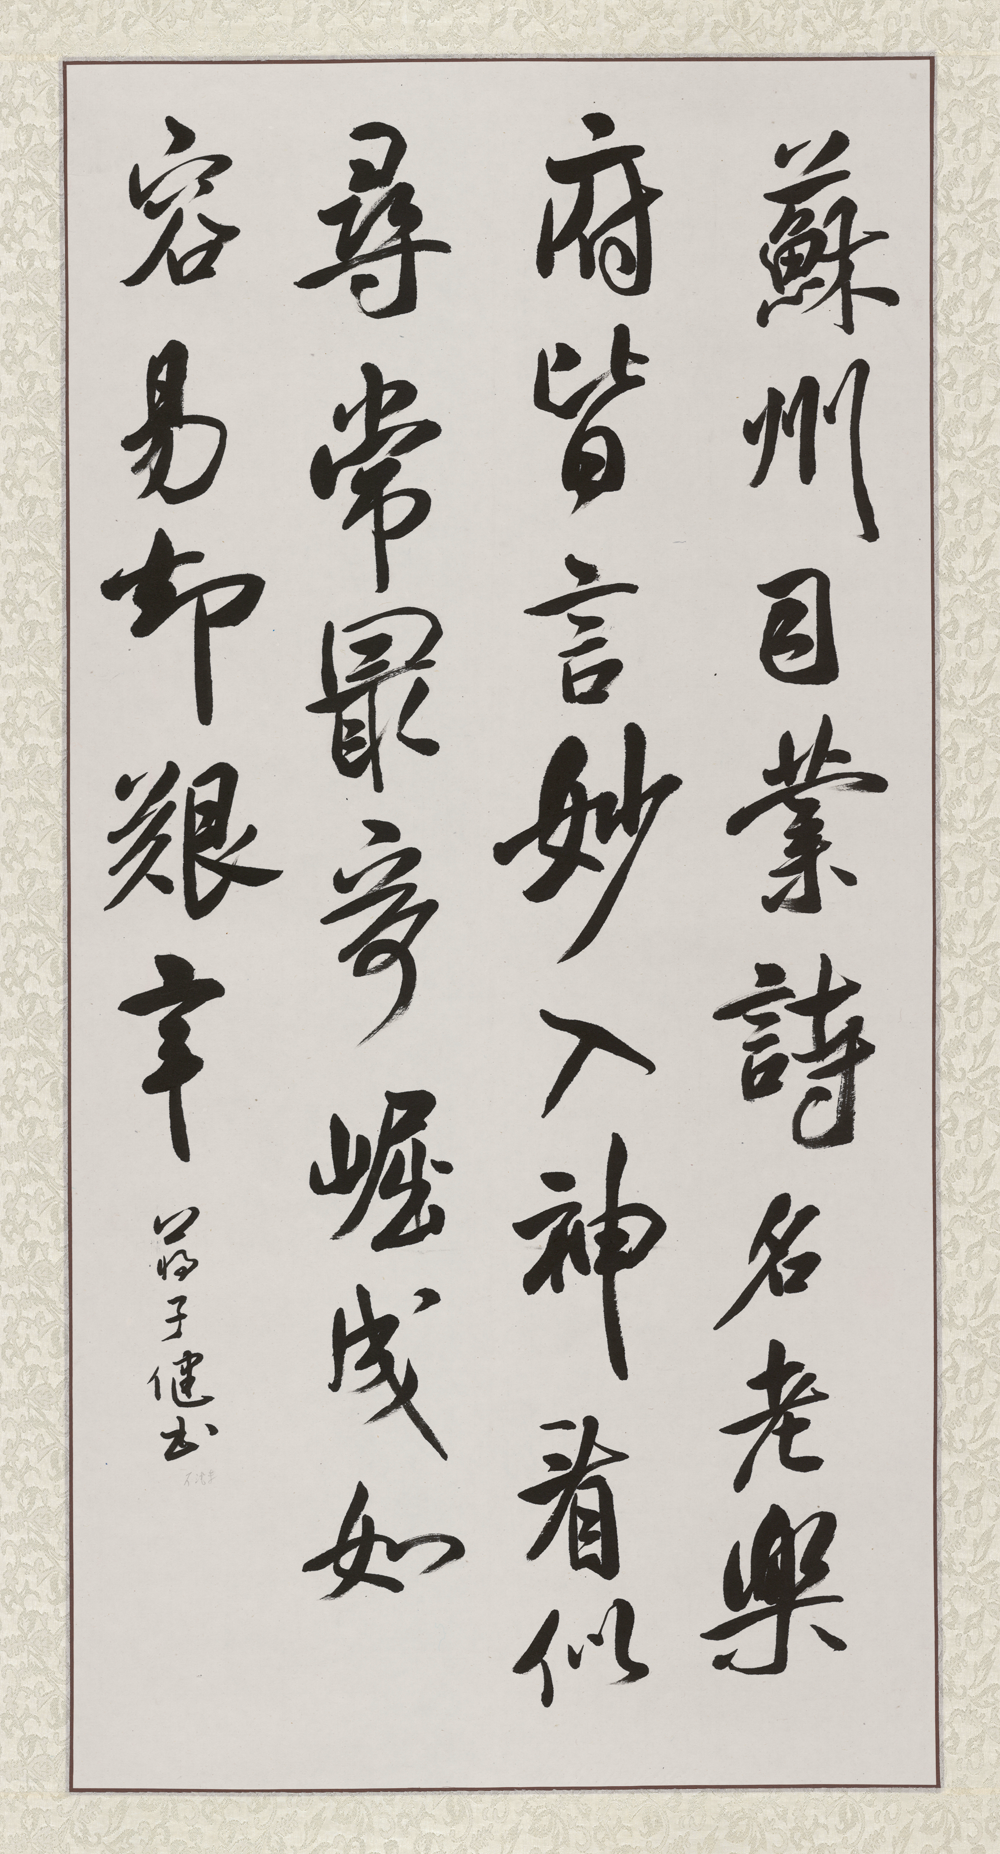 蘇州司業詩名老樂
府皆言妙入神看似
尋常最奇崛成如
容易却艱辛
蔣子健書